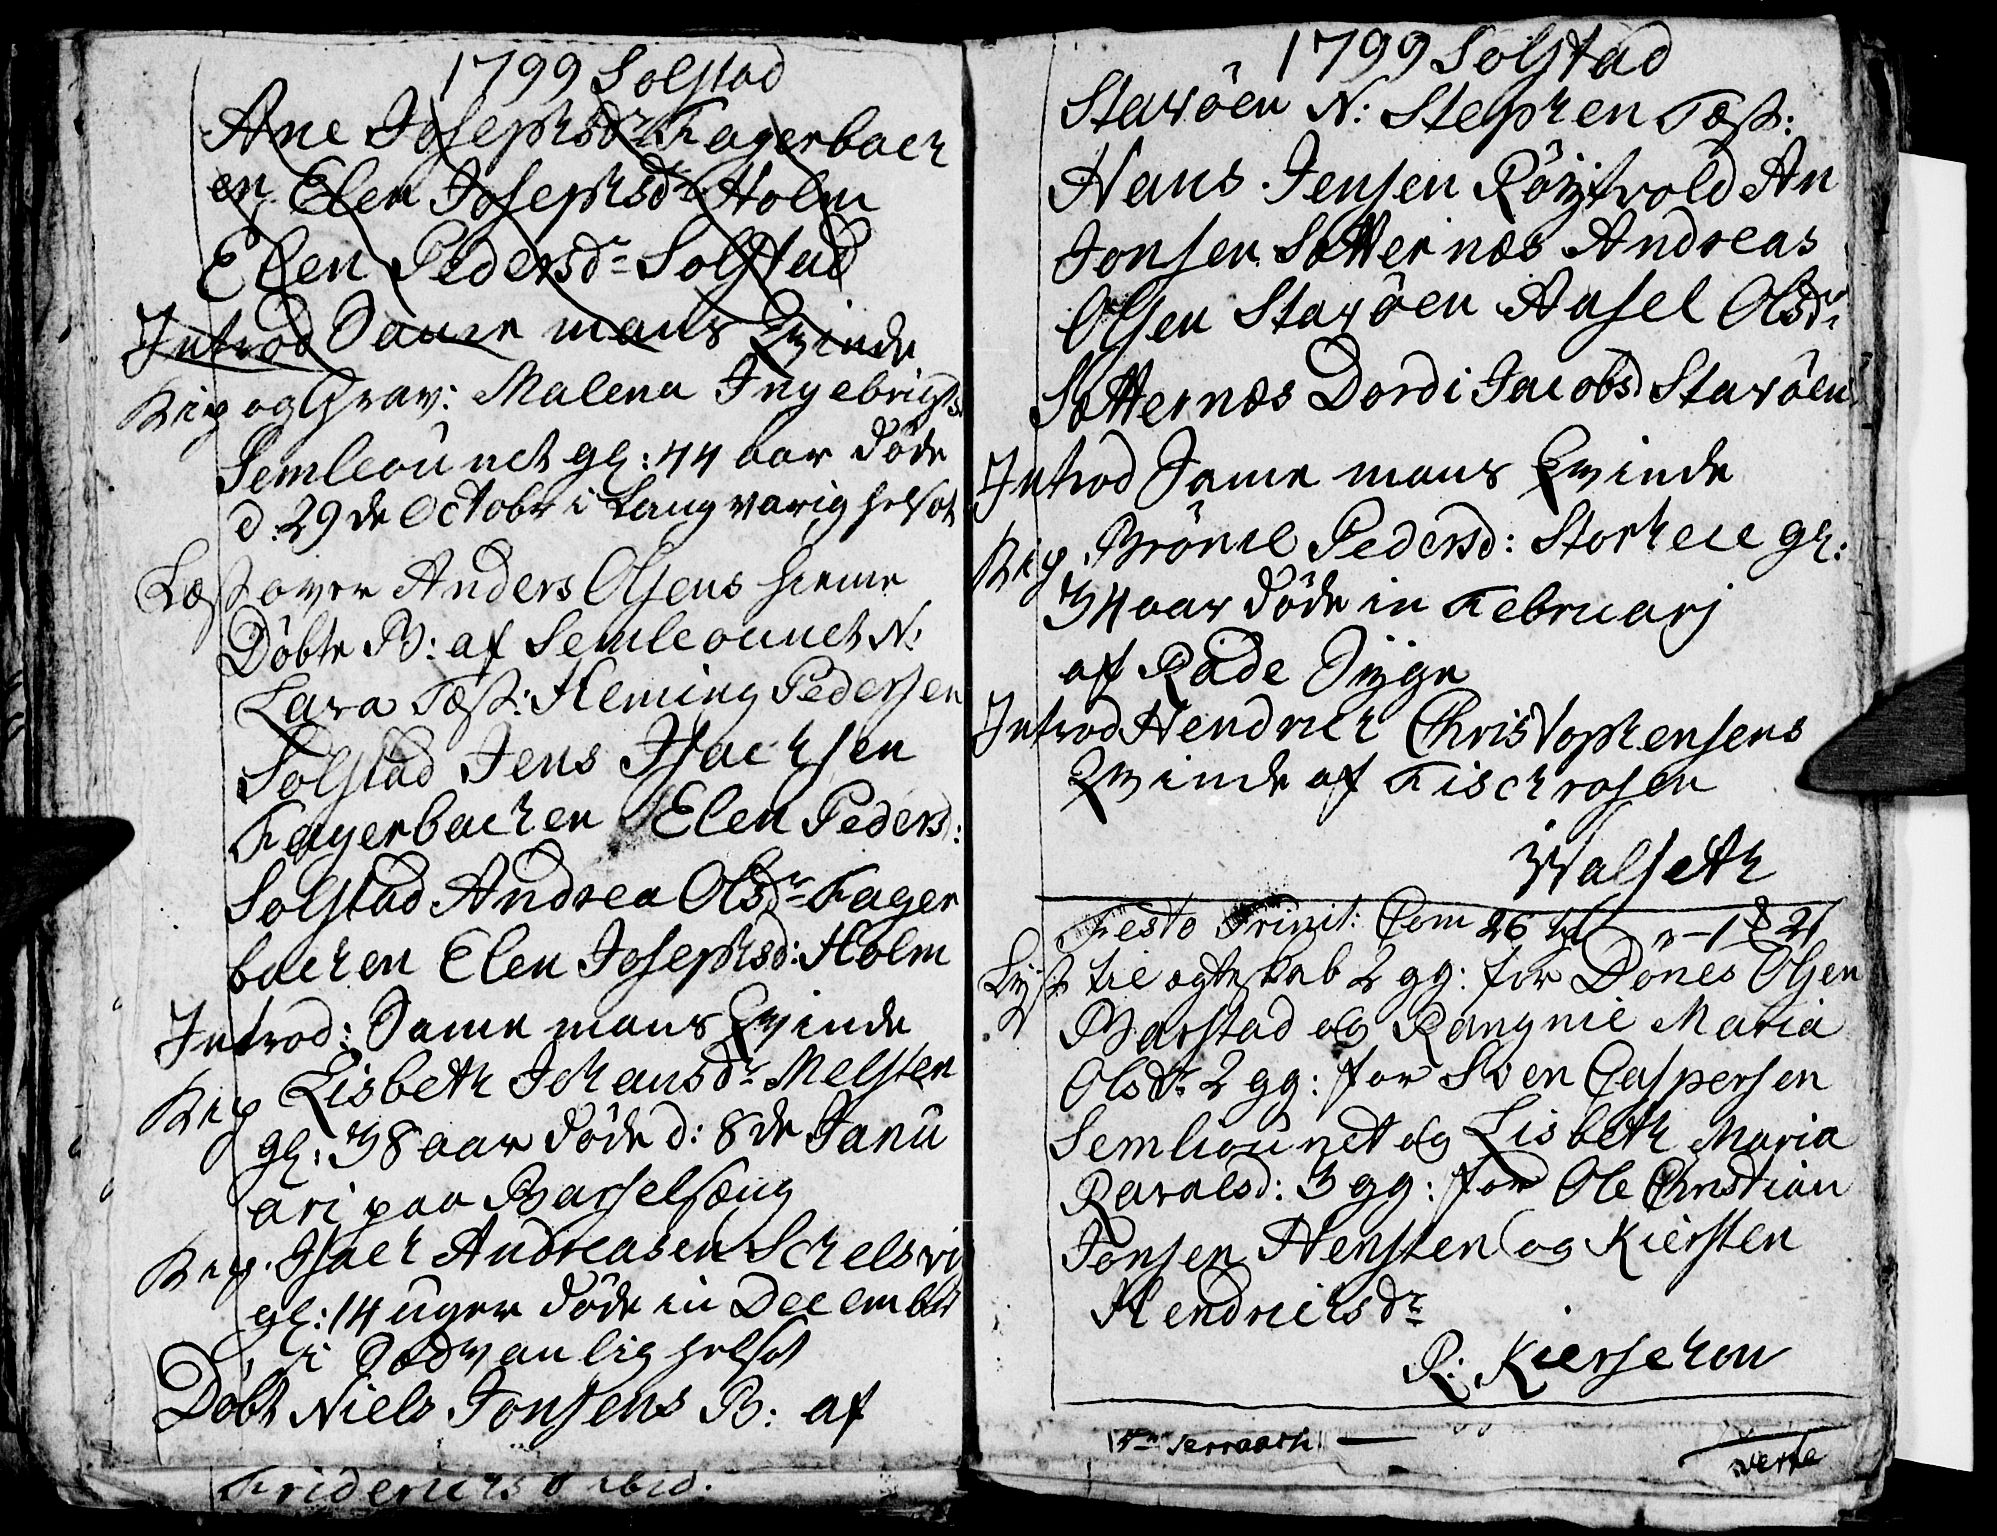 1799 Solstad
Ane Josephsdr Fagerbach
en Elen Josephsdr Holm
Elen Pedersdr Solstad
Introd Same mans Qvinde
og Grav: Malena Ingebrigts
Semliounet gl: 44 aar døde
d. 29de Octobr i Langvarig helsot
Læst over Anders Olsens hieme
Døbte B: af Semleounet N:
Lava Test: Heming Pedersen
Solstad Jens Isachsen
Fagerbachen Elen Pedersd:
Solstad Andrea Olsdr Fager
bachen Elen Josephsd: Holm
Introd: Same mans Qvinde
Lisbeth Johansdr Melsten
gl: 38 aar døde d: 8de Janu
ari paa Barselseng
Isach Andreasen Schelsvig
gl: 14 uger døde in Decembr
i Sædvanlig helsot
Døbt Niels Jonsens B: af
Fridericks
1799 Solstad
Stavøen N: Stephen Test:
Hans Jensen Røytvold An
Jonsen Sætternæs Andreas
Olsen Stavøen Ansel Olsdr
Sætternæs Dordi Jacobsd Stavøen
Introd Same mans Qvinde
Brønil Pedersd: Storheie gl:
34 aar døde in Februarj
af Råde Syge
Introd Hendrich Christophensens
Qvinde af Fischrosen
Walseth
Festo Trinit: Com 26
Lyst til egteskab 2 gg: for Dønes Olsen
Barstad og Rangnil Maria
Olsdr 2 gg: for Sven Caspersen
Semliounet og Lisbeth Maria
Pavalsd: 3 gg: for Ole Christian
Jonsen Hensten og Kiersten
Hendrichsdr
P: Kierschou
verte